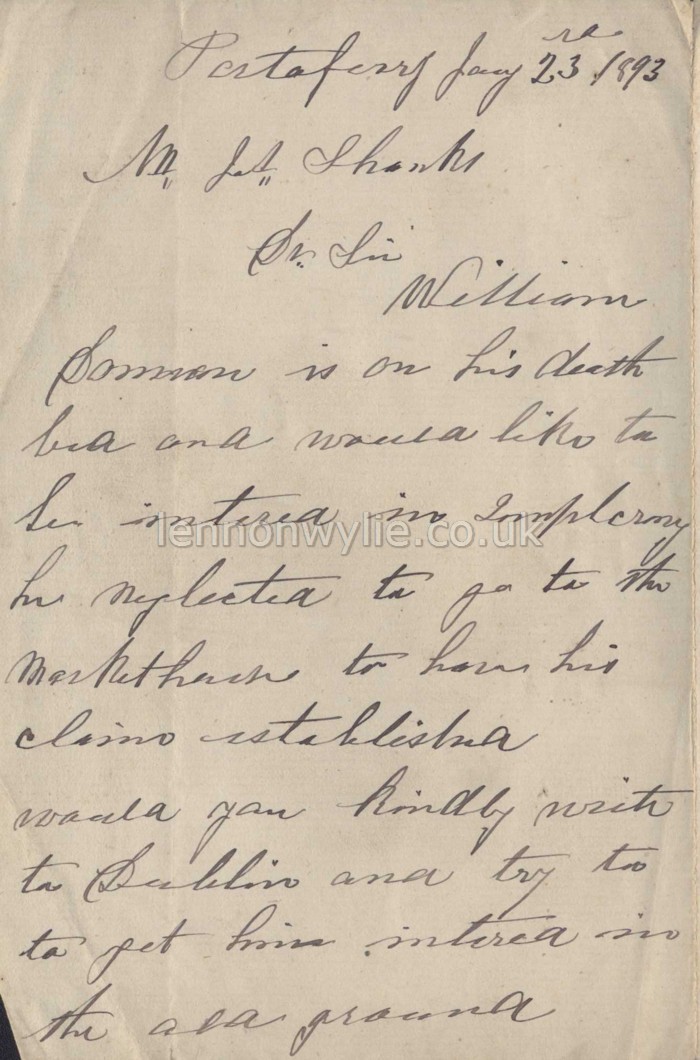 Portaferry Jany 23rd 1893
Mr Jas Shanks
Dr. Sir
William
Dorrian is on his death
bed and would like to
be intered in Templecrony
he neglected to go to the
Markethouse to have his
claim established
would you kindly write
to Dublin and try to
to get him intered in
the old ground
lennonwylie.co.uk